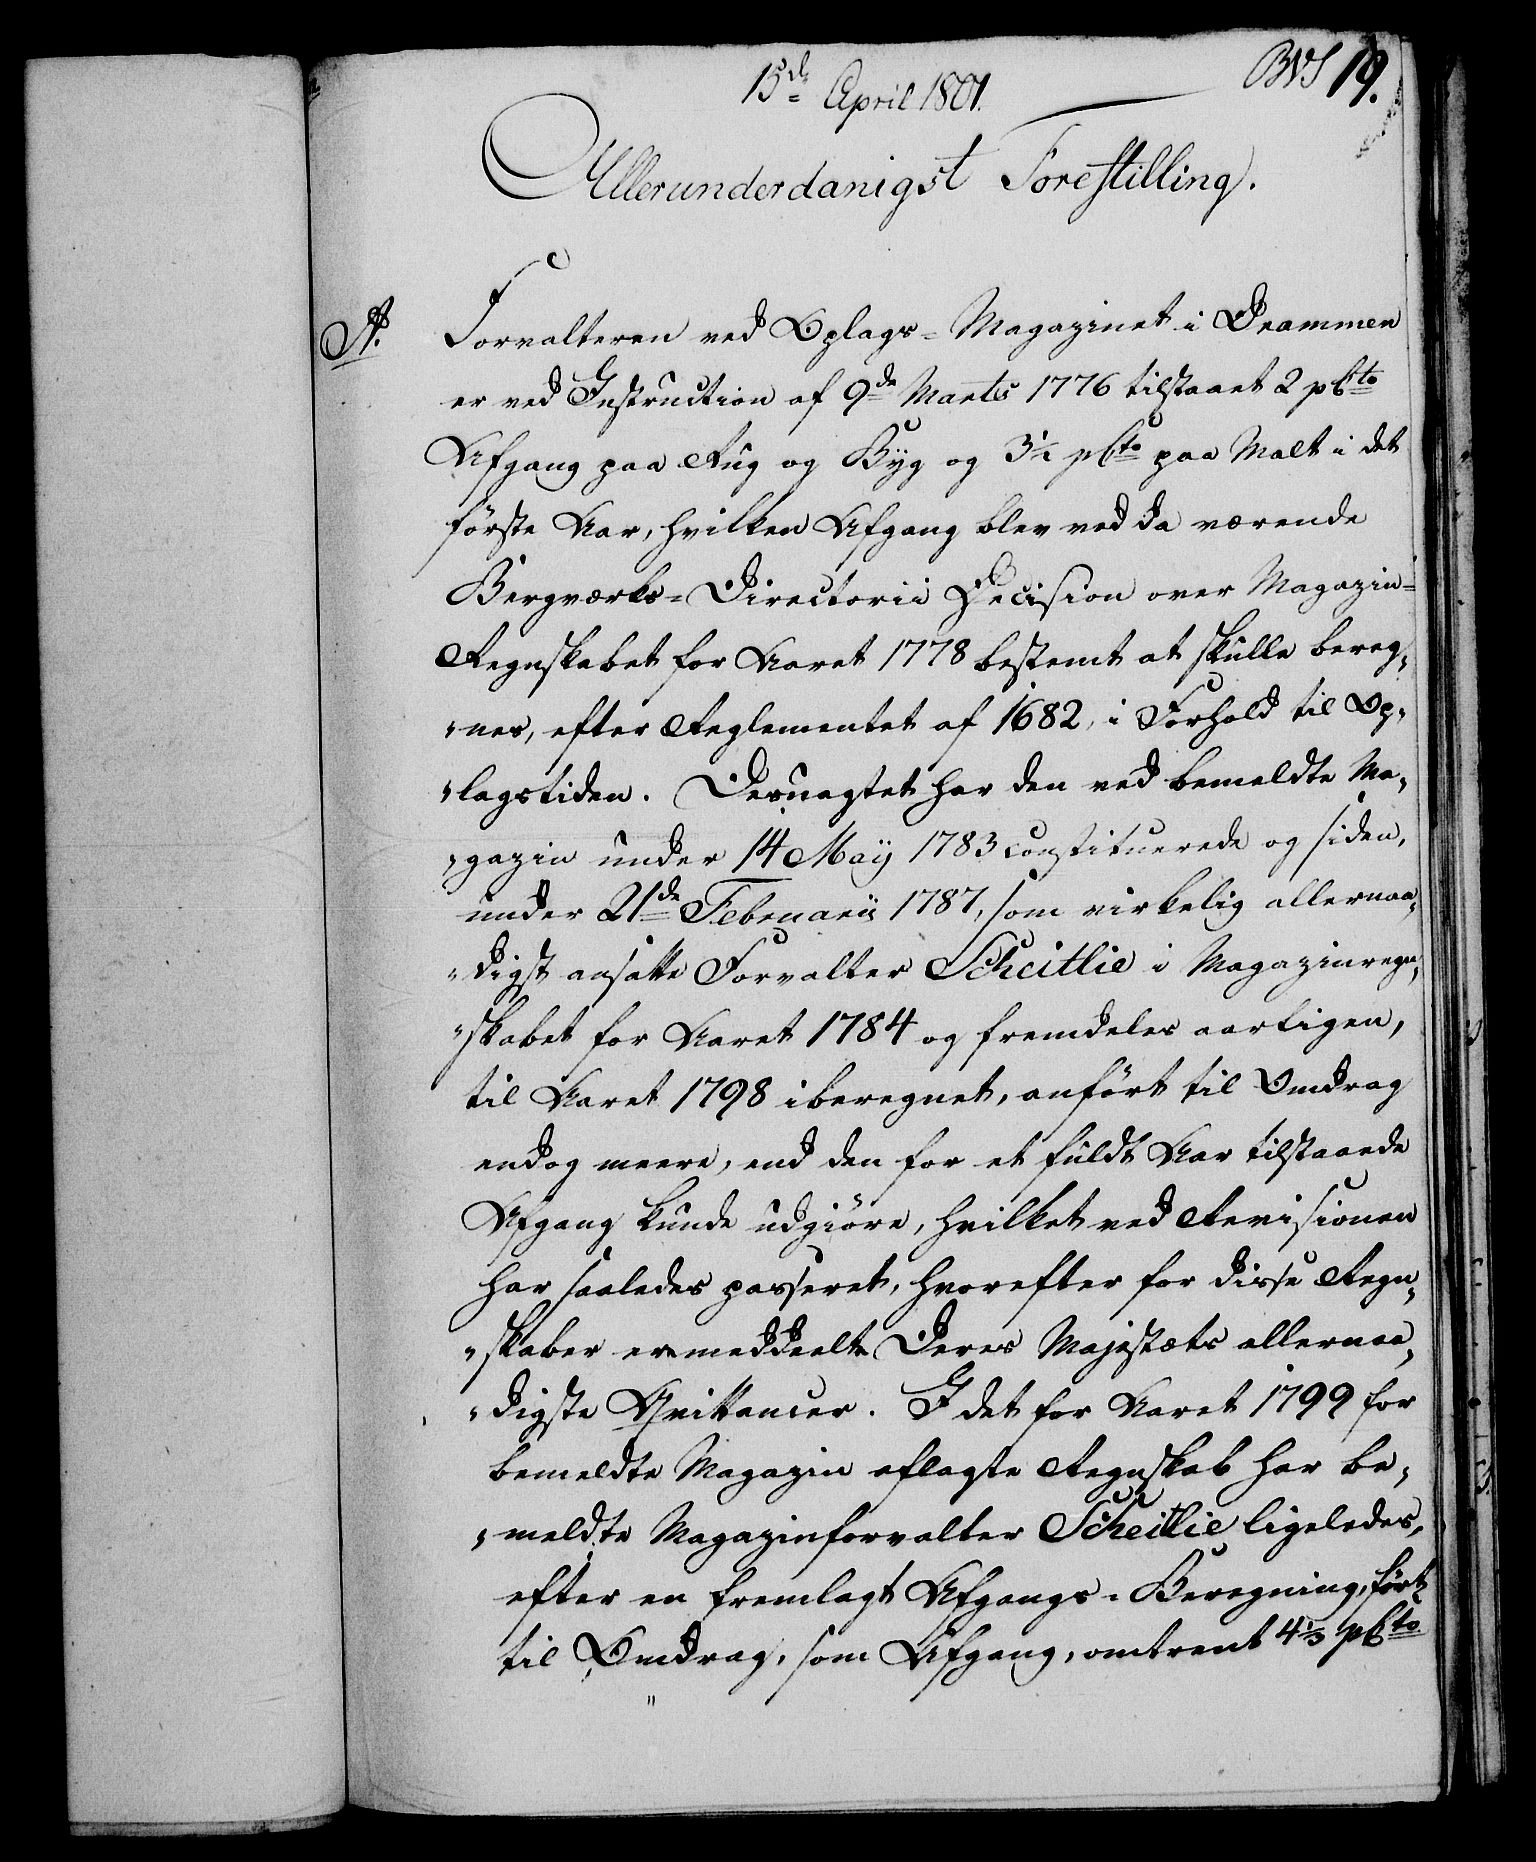 15de April 1801.
BVS 19.
Allerunderdanigst Forestilling.
A. Forvalteren ved Oplags-Magazinet i Drammen
er ved Instruction af 9de Marts 1776 tilstaaet 2 pCto
Afgang paa Rug og Byg og 3½ pCto paa Malt i det
första Aar, hvilken Afgang blev ved da værende
Bergværks-Directorii Decision over Magazin-
Regnskabet for Aaret 1778 bestemt at skulle bereg-
nes, efter Reglementet af 1682, i Forhold til Op-
lagstiden. Desuagtet har den ved bemeldte Ma-
gazin under 14 Maij 1783 constituerede og siden,
under 21de Februarii 1787, som virkelig allernaa-
digst ansatte Forvalter Scheitlie i Magazinregn-
skabet for Aaret 1784 og fremdeles aarligen,
til Aaret 1798 iberegnet, anført til Omdrag
endog meere, end den for et fuldt Aar tilstaaede
Afgang kunde udgiøre, hvilket ved Revisionen
har saaledes passeret, hvorefter for disse Regn-
skaber ere meddeelte Deres Majestæts allernaa-
digste Qvittancer. I det for Aaret 1799 for
bemeldte Magazin aflagte Regnskab har be-
meldte Magazinforvalter Scheitlie ligeledes,
efter en fremlagt Afgangs-Beregning, ført
til Omdrag, som Afgang, omtrent 4⅓ pCto